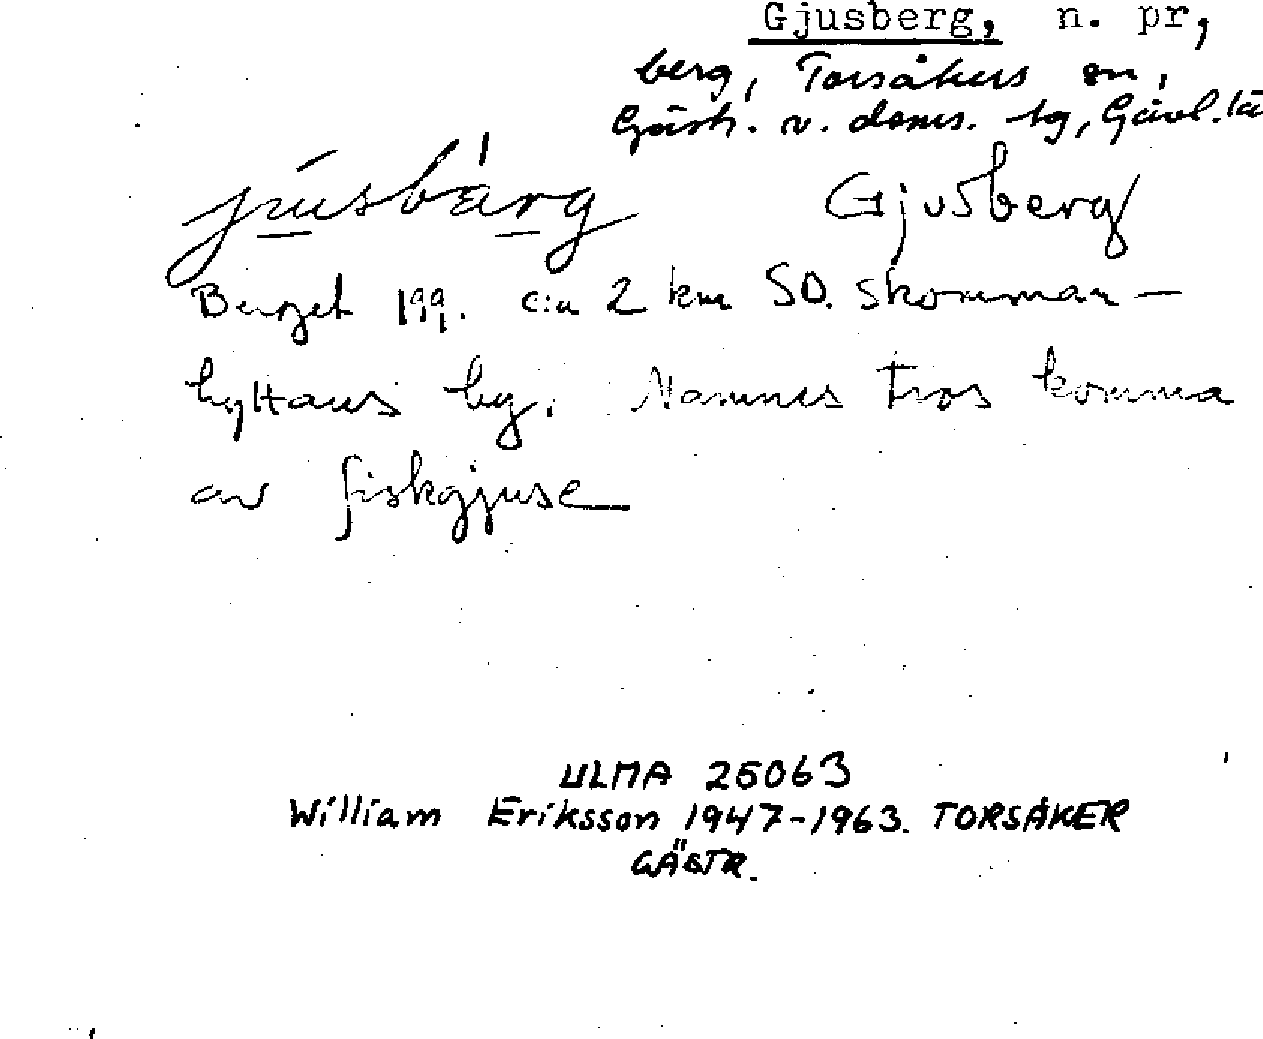 Gjusberg, n. pr,
berg, Torsåkers sn,
Gästr. v. doms. tg, Gävl. lä
jusbärg Gjusberg
Berget 199. c:a 2 km SO. Skomman-
hyttans by. Namnet tros komma
av fiskgjuse
ULMA 25063
William Eriksson 1947-1963. TORSÅKER
GÄSTR.